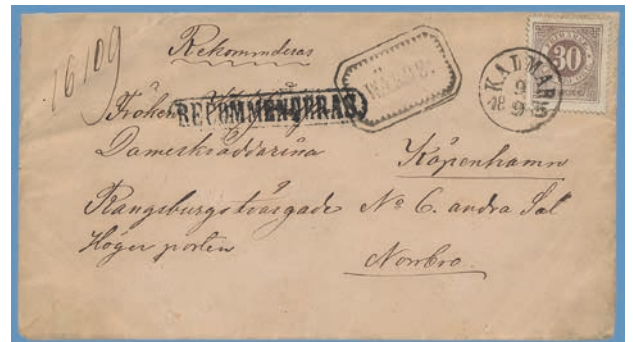 16109
Rekommderas
RECOMMENDERAS
KALMAR
9
18 9 75
30
Fröken
Damerskräddarina
Köpenhamn
Rangsburgstväsgade No 6. andra Sal
Höger porten
Norrbro